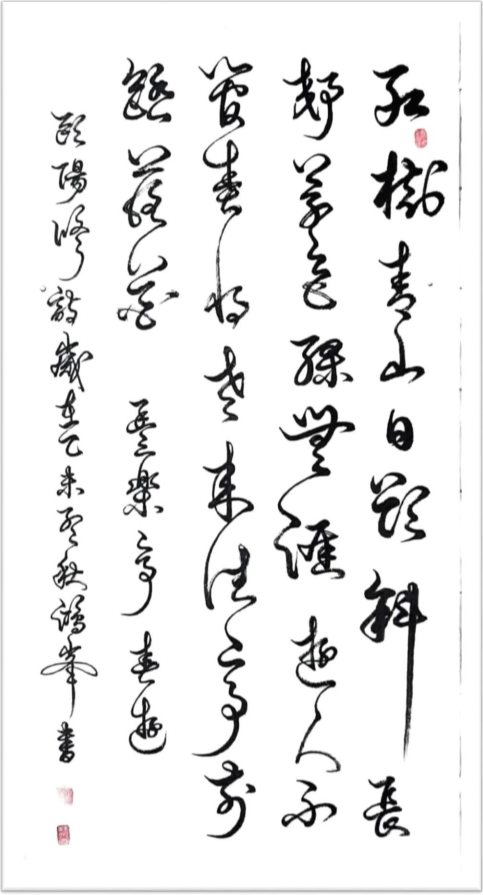 紅樹青山日欲斜長
郊草色綠無涯遊人不
管春将老来往亭前
踏落花 豐樂亭春遊
歐陽修詩歲在乙未孟秋鴻峯書